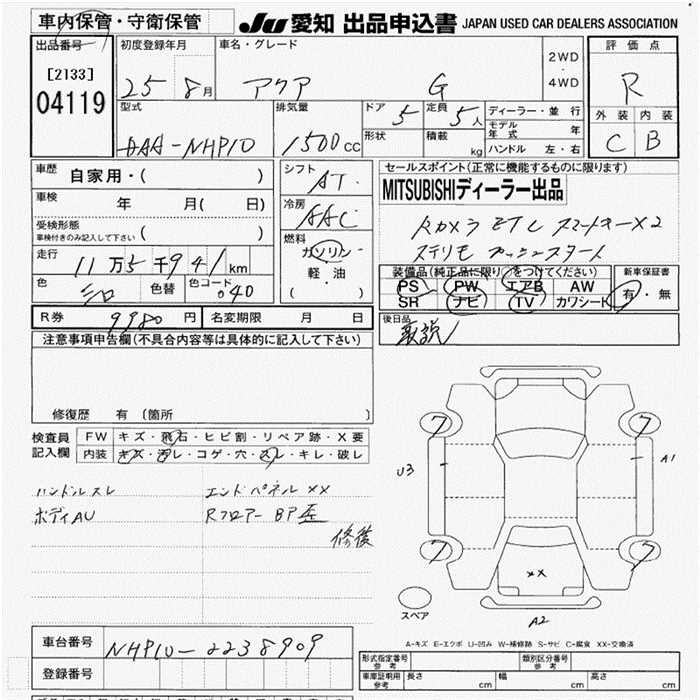 車内保管・守衛保管
JU 愛知 出品申込書 JAPAN USED CAR DEALERS ASSOCIATION
出品番号 初度登録年月 車名・グレード 評価点
[2133]
04119
25 8月 アクア G 2WD・4WD R
型式 排気量 ドア 5 定員 5人 ディーラー・並行 外装 内装
DAA-NHP10 1500cc 形状 積載 kg モデル年式 年 C B
ハンドル 左・右
車歴 自家用・( ) シフト AT セールスポイント(正常に機能するものに限ります)
MITSUBISHIディーラー出品
車検 年 月( 日) 冷房 AAC
Rカメラ ETC スマートキーX2
受検形態
車検付きのみ記入して下さい ( ) 燃料 ガソリン
ステリモ プッシュスタート
走行 11万5千941km 軽・油
装備品(純正品に限り○をつけてください) 新車保証書
色 シロ 色替 色コード 040 ( )
PS PW エアB AW 有・無
SR ナビ TV カワシート
R券 9980円 名変期限 月 日
後日品 取説
注意事項申告欄(不具合内容等は具体的に記入して下さい)
修復歴 有〔箇所 〕
検査員記入欄 FW キズ・飛石・ヒビ割・リペア跡・X要
内装 キズ・汚レ・コゲ・穴・スレ・キレ・破レ
ハンドルスレ エンドパネルXX
ボディAU Rフロアー BP歪
修後
7 7
U3 A1
7 7
XX
スペア
A2
A-キズ E-エクボ U-凹み W-補修跡 S-サビ C-腐食 XX-交換済
車台番号 NHP10-2238909
型式指定番号 参考 類別区分番号 参考
登録番号 車庫証明用 参考 長さ cm 幅 cm 高さ cm